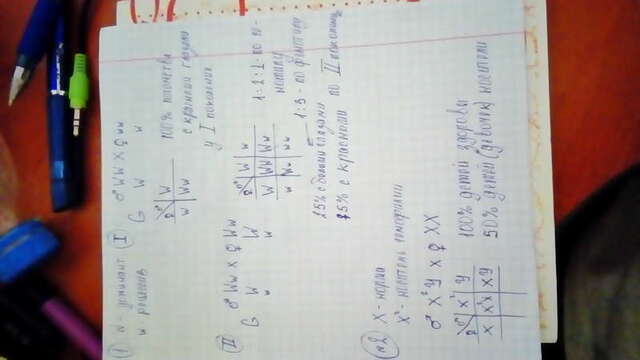 1 W - доминант I ♂ WW х ♀ ww
w - рецессив G W w
♀ ♂ W
w Ww
100% потомства
с красными глазами
у I поколения
II ♂ Ww х ♀ Ww
G W W
w w
♀ ♂ W w
W WW Ww
w Ww ww
1:2:1 - по ге-
нотипу
1:3 - по фенотипу
25% с белыми глазами
75% с красными по II поколению
№2 X - норма
Xʰ - носитель гемофилии
♂ XʰY х ♀ XX
♀ ♂ Xʰ Y
X XʰX XY
100% детей здоровы
50% детей (девочек) носители